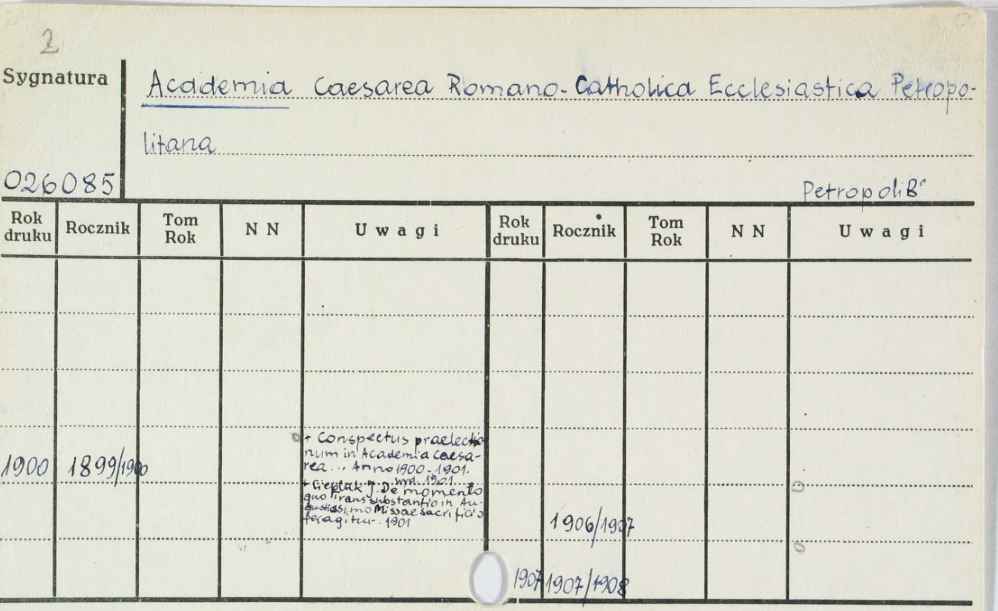 2
Sygnatura
Academia Caesarea Romano-Catholica Ecclesiastica Petropo-
litana
026085
Petropoli
Rok druku Rocznik Tom Rok N N U w a g i Rok druku Rocznik Tom Rok N N U w a g i
1900 1899/1900
+ Conspectus praelectio
num in Academia Caesa-
rea... Anno 1900-1901.
wyd. 1901
+ Cieplak J. De momento
quo Transsubstantio in Au-
gustissimo Missae sacrificio
peragitur. 1901
1906/1907
1907 1907/1908